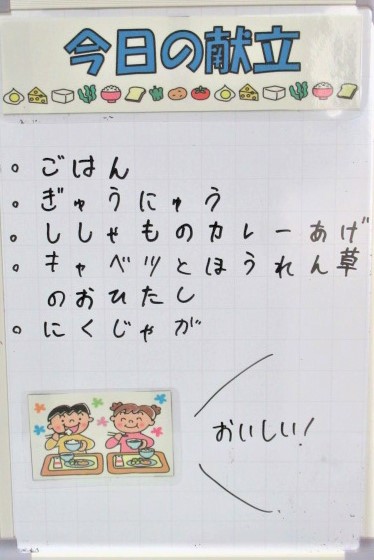 今日の献立
。ごはん
。ぎゅうにゅう
。ししゃものカレーあげ
。キャベツとほうれん草
のおひたし
。にくじゃが
おいしい!